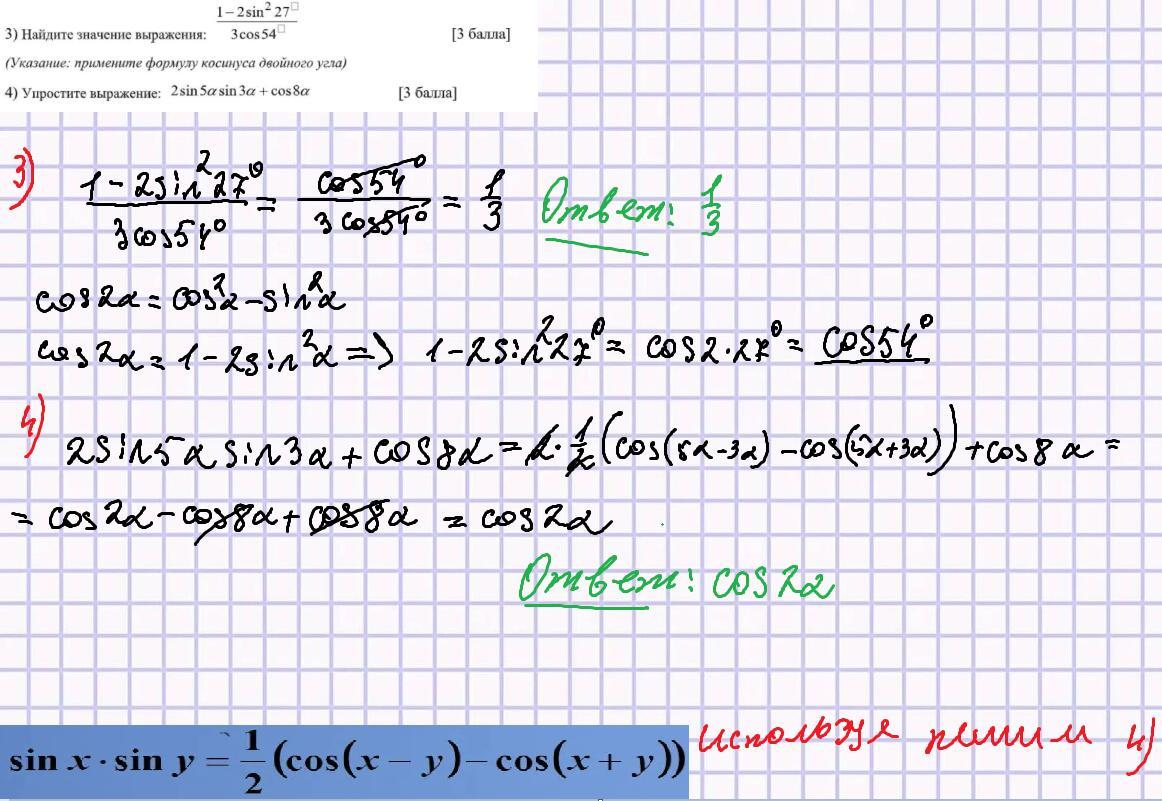 3) Найдите значение выражения: (1 − 2sin² 27□)/(3cos54□) [3 балла]
(Указание: примените формулу косинуса двойного угла)
4) Упростите выражение: 2sin5α sin3α + cos8α [3 балла]
3) (1 − 2sin²27⁰)/(3cos54⁰) = (cos54⁰)/(3cos54⁰) = 1/3 Ответ: 1/3
cos2α = cos²α − sin²α
cos2α = 1 − 2sin²α => 1 − 2sin²27⁰ = cos2·27⁰ = cos54⁰
4) 2sin5α sin3α + cos8α = 2·1/2(cos(5α−3α) − cos(5α+3α)) + cos8α =
= cos2α − cos8α + cos8α = cos2α
Ответ: cos2α
sin x · sin y = 1/2 (cos(x − y) − cos(x + y)) используя решим 4)